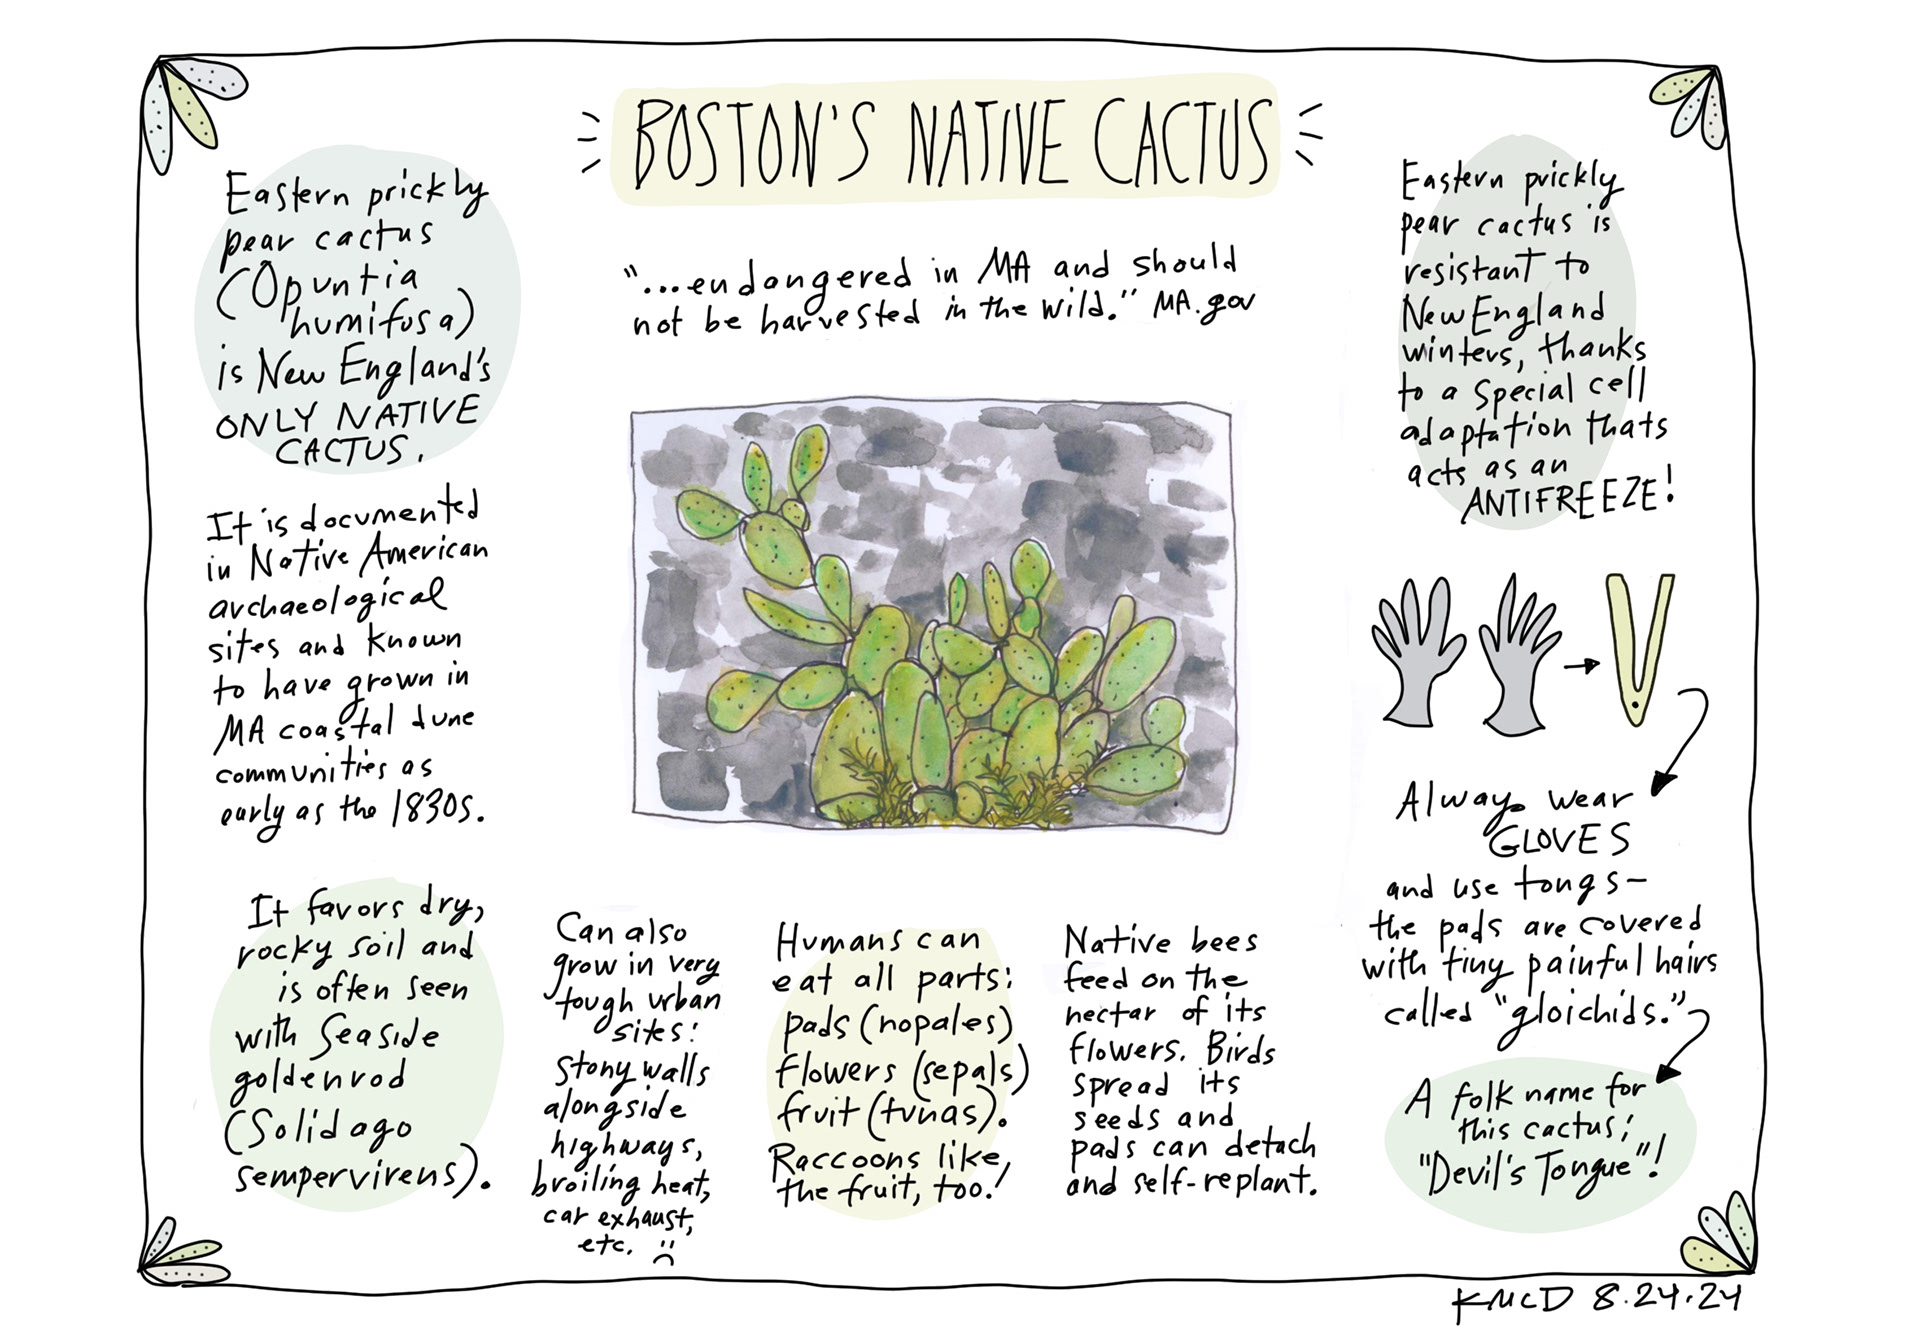 BOSTON'S NATIVE CACTUS
"...endangered in MA and should
not be harvested in the wild." MA.gov
Eastern prickly
pear cactus
(Opuntia
humifusa)
is New England's
ONLY NATIVE
CACTUS.
It is documented
in Native American
archaeological
sites and known
to have grown in
MA coastal dune
communities as
early as the 1830s.
It favors dry,
rocky soil and
is often seen
with Seaside
goldenrod
(Solidago
sempervirens).
Can also
grow in very
tough urban
sites:
stony walls
alongside
highways,
broiling heat,
car exhaust,
etc. :(
Humans can
eat all parts:
pads (nopales)
flowers (sepals)
fruit (tunas).
Raccoons like
the fruit, too!
Native bees
feed on the
nectar of its
flowers. Birds
spread its
seeds and
pads can detach
and self-replant.
Eastern prickly
pear cactus is
resistant to
New England
winters, thanks
to a special cell
adaptation thats
acts as an
ANTIFREEZE!
Always wear
GLOVES
and use tongs—
the pads are covered
with tiny painful hairs
called "gloichids."
A folk name for
this cactus:
"Devil's Tongue"!
KMCD 8.24.24